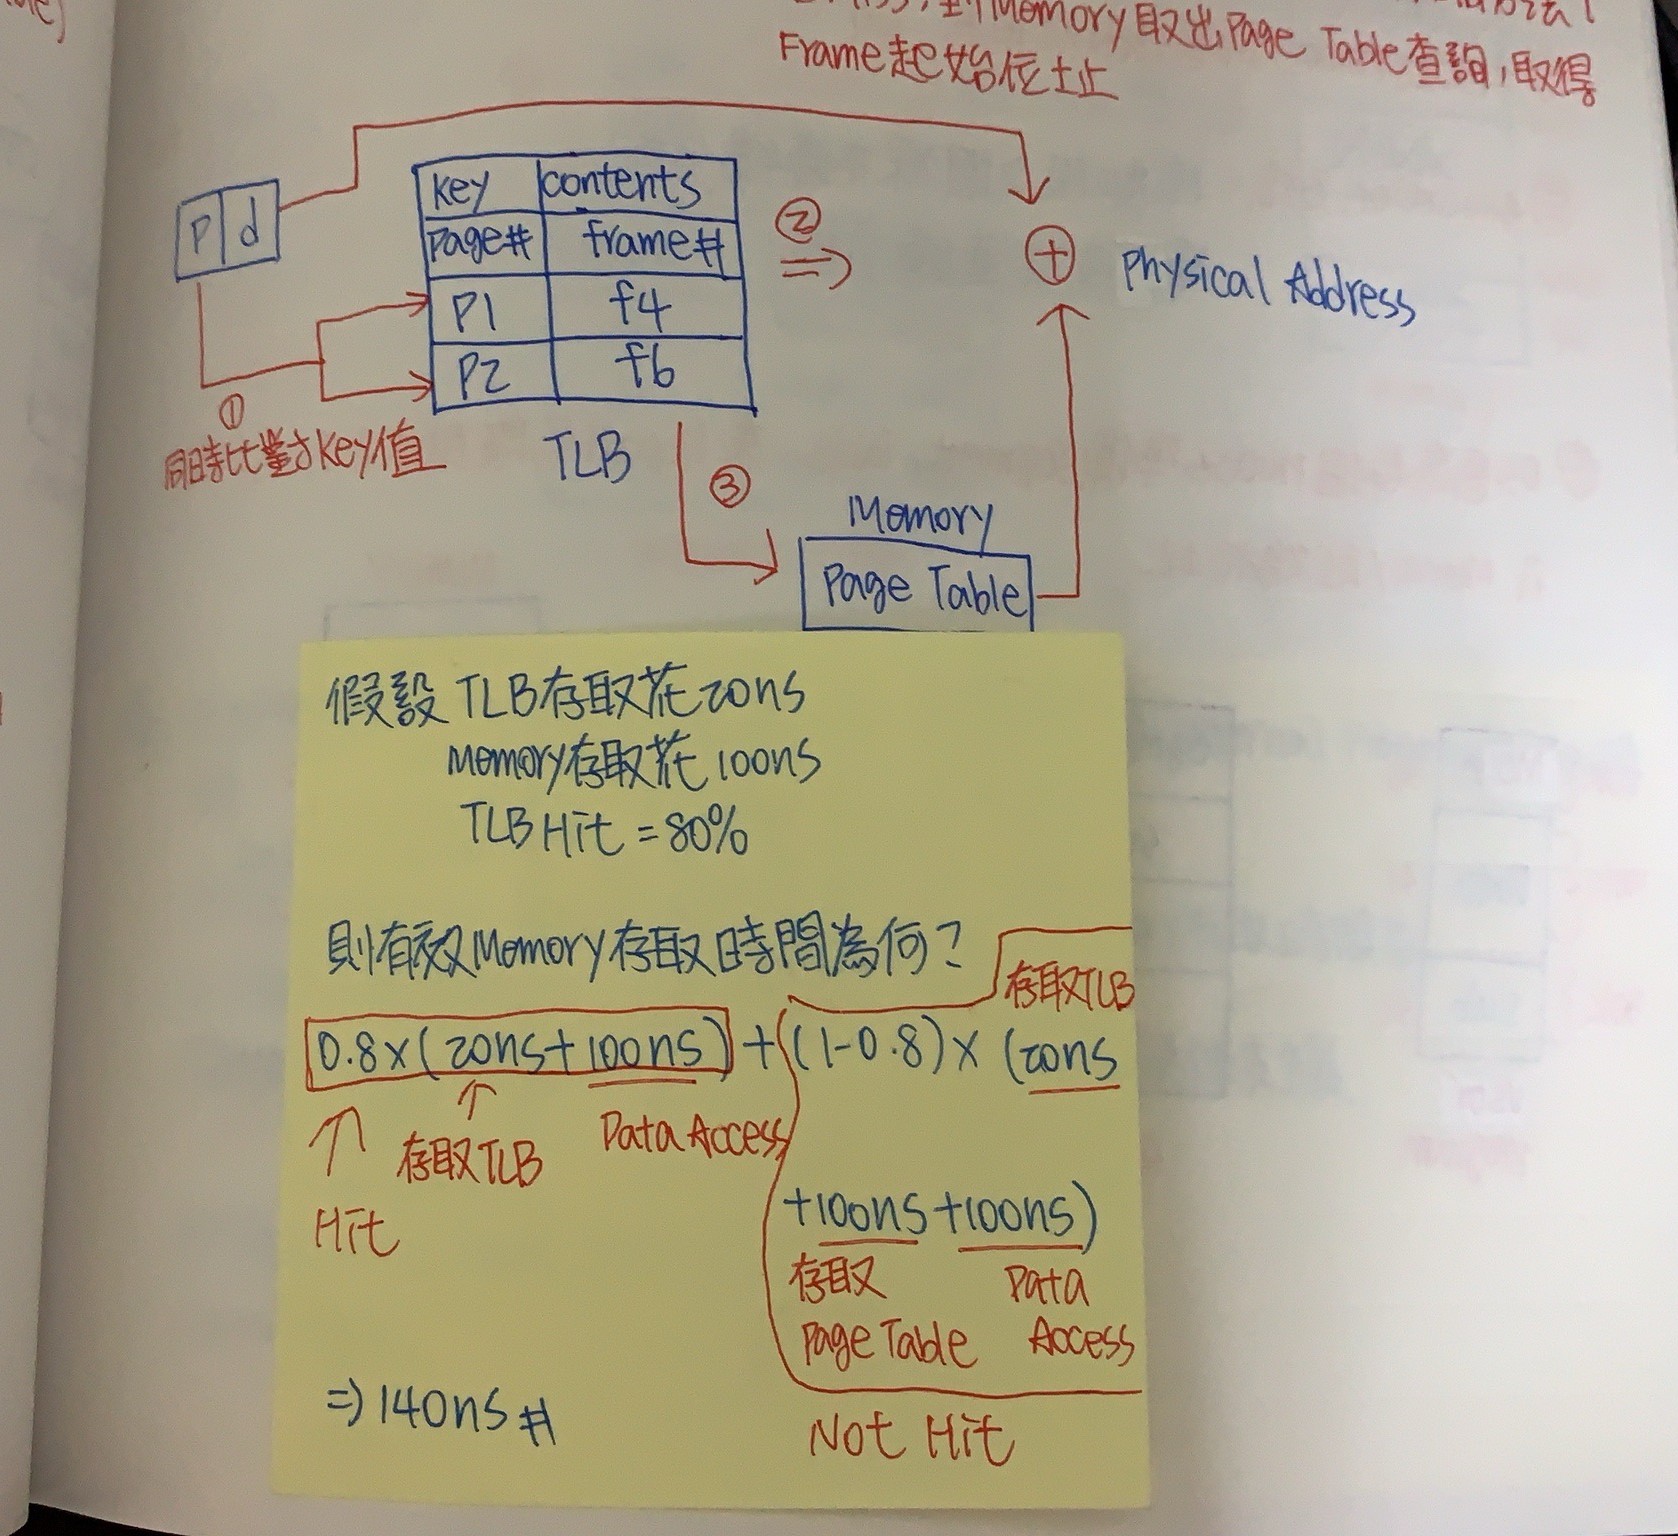 到Memory取出Page Table查詢,取得
Frame起始位址
P d
key contents
page# frame#
P1 f4
P2 f6
②
Physical Address
①
同時比對key值
TLB
③
Memory
Page Table
假設 TLB存取花20ns
Memory存取花100ns
TLB Hit = 80%
則有效Memory存取時間為何?
存取TLB
0.8×(20ns+100ns)+(1-0.8)×(20ns
存取TLB
Data Access
Hit
+100ns+100ns)
存取
Page Table
Data
Access
⇒140ns#
Not Hit